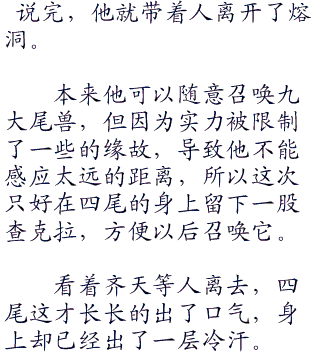 说完，他就带着人离开了熔
洞。
本来他可以随意召唤九
大尾兽，但因为实力被限制
了一些的缘故，导致他不能
感应太远的距离，所以这次
只好在四尾的身上留下一股
查克拉，方便以后召唤它。
看着齐天等人离去，四
尾这才长长的出了口气，身
上却已经出了一层冷汗。